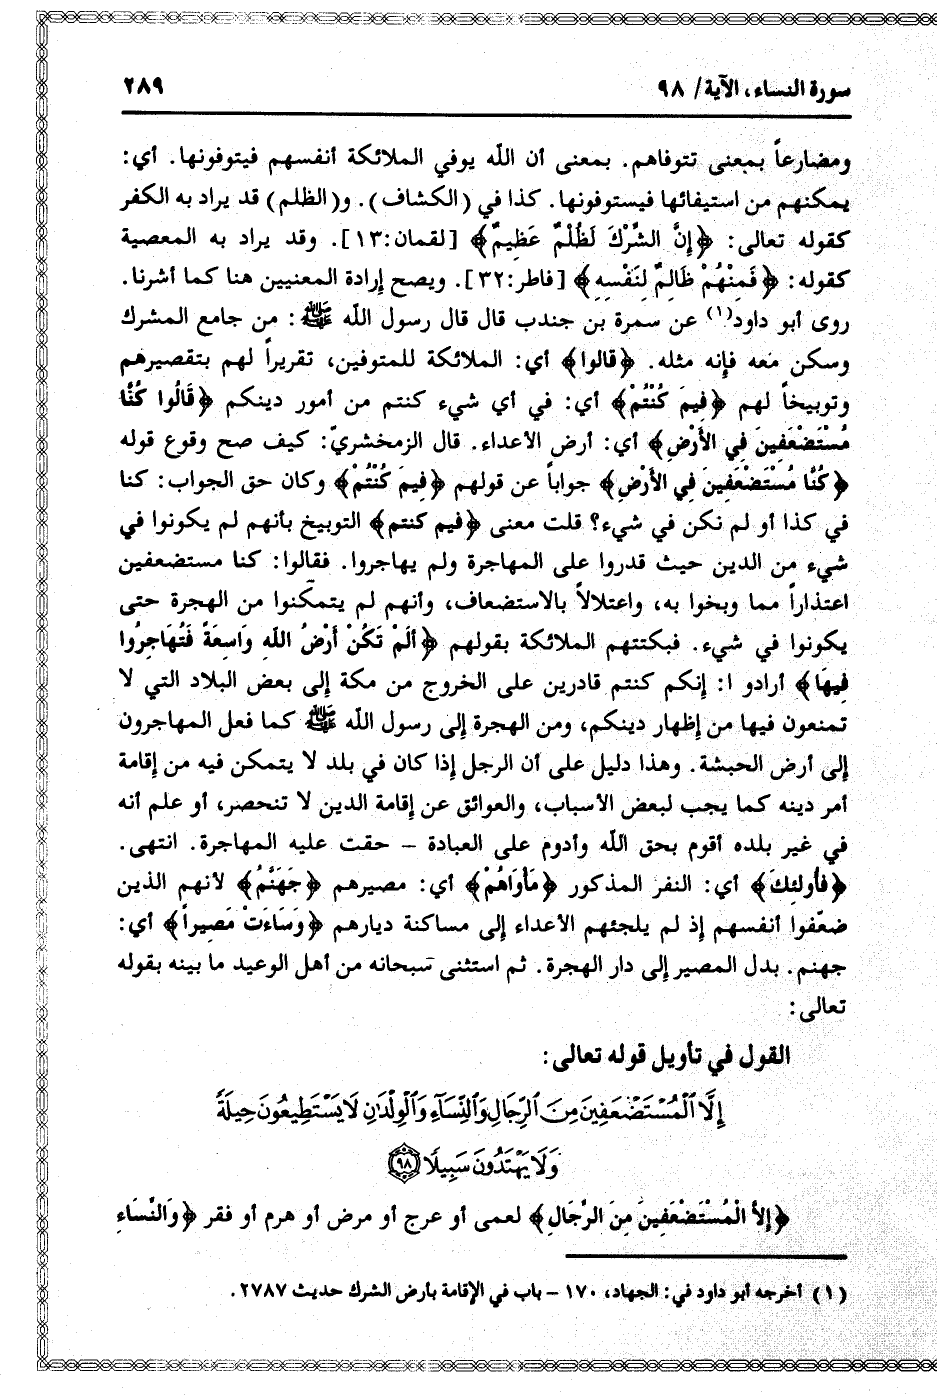 سورة النساء، الآية/ ٩٨
٢٨٩
ومضارعاً بمعنى تتوفاهم. بمعنى أن الله يوفي الملائكة أنفسهم فيتوفونها. أي:
يمكنهم من استيفائها فيستوفونها. كذا في (الكشاف). و(الظلم) قد يراد به الكفر
كقوله تعالى: ﴿إِنَّ الشِّرْكَ لَظُلْمٌ عَظِيمٌ﴾ [لقمان:١٣]. وقد يراد به المعصية
كقوله: ﴿فَمِنْهُمْ ظَالِمٌ لِنَفْسِهِ﴾ [فاطر:٣٢]. ويصح إرادة المعنيين هنا كما أشرنا.
روى أبو داود(١) عن سمرة بن جندب قال قال رسول الله ﷺ: من جامع المشرك
وسكن معه فإنه مثله. ﴿قالوا﴾ أي: الملائكة للمتوفين، تقريراً لهم بتقصيرهم
وتوبيخاً لهم ﴿فِيمَ كُنْتُمْ﴾ أي: في أي شيء كنتم من أمور دينكم ﴿قَالُوا كُنَّا
مُسْتَضْعَفِينَ فِي الأَرْضِ﴾ أي: أرض الأعداء. قال الزمخشريّ: كيف صح وقوع قوله
﴿كُنَّا مُسْتَضْعَفِينَ فِي الأَرْضِ﴾ جواباً عن قولهم ﴿فِيمَ كُنْتُمْ﴾ وكان حق الجواب: كنا
في كذا أو لم نكن في شيء؟ قلت معنى ﴿فيم كنتم﴾ التوبيخ بأنهم لم يكونوا في
شيء من الدين حيث قدروا على المهاجرة ولم يهاجروا. فقالوا: كنا مستضعفين
اعتذاراً مما وبخوا به، واعتلالاً بالاستضعاف، وأنهم لم يتمكنوا من الهجرة حتى
يكونوا في شيء. فبكتتهم الملائكة بقولهم ﴿أَلَمْ تَكُنْ أَرْضُ اللهِ وَاسِعَةً فَتُهَاجِرُوا
فِيهَا﴾ أرادو ا: إنكم كنتم قادرين على الخروج من مكة إلى بعض البلاد التي لا
تمنعون فيها من إظهار دينكم، ومن الهجرة إلى رسول الله ﷺ كما فعل المهاجرون
إلى أرض الحبشة. وهذا دليل على أن الرجل إذا كان في بلد لا يتمكن فيه من إقامة
أمر دينه كما يجب لبعض الأسباب، والعوائق عن إقامة الدين لا تنحصر، أو علم أنه
في غير بلده أقوم بحق الله وأدوم على العبادة – حقت عليه المهاجرة. انتهى.
﴿فأُولئِكَ﴾ أي: النفر المذكور ﴿مَأْوَاهُمْ﴾ أي: مصيرهم ﴿جَهَنَّمُ﴾ لأنهم الذين
ضعّفوا أنفسهم إذ لم يلجئهم الأعداء إلى مساكنة ديارهم ﴿وَسَاءَتْ مَصِيراً﴾ أي:
جهنم. بدل المصير إلى دار الهجرة. ثم استثنى سبحانه من أهل الوعيد ما بينه بقوله
تعالى:
القول في تأويل قوله تعالى:
إِلَّا ٱلْمُسْتَضْعَفِينَ مِنَ ٱلرِّجَالِ وَٱلنِّسَآءِ وَٱلْوِلْدَانِ لَا يَسْتَطِيعُونَ حِيلَةً
وَلَا يَهْتَدُونَ سَبِيلًا ٩٨
﴿إِلاَّ الْمُسْتَضْعَفِينَ مِنَ الرِّجَالِ﴾ لعمى أو عرج أو مرض أو هرم أو فقر ﴿وَالنِّسَاءِ
(١) أخرجه أبو داود في: الجهاد، ١٧٠ – باب في الإقامة بأرض الشرك حديث ٢٧٨٧.